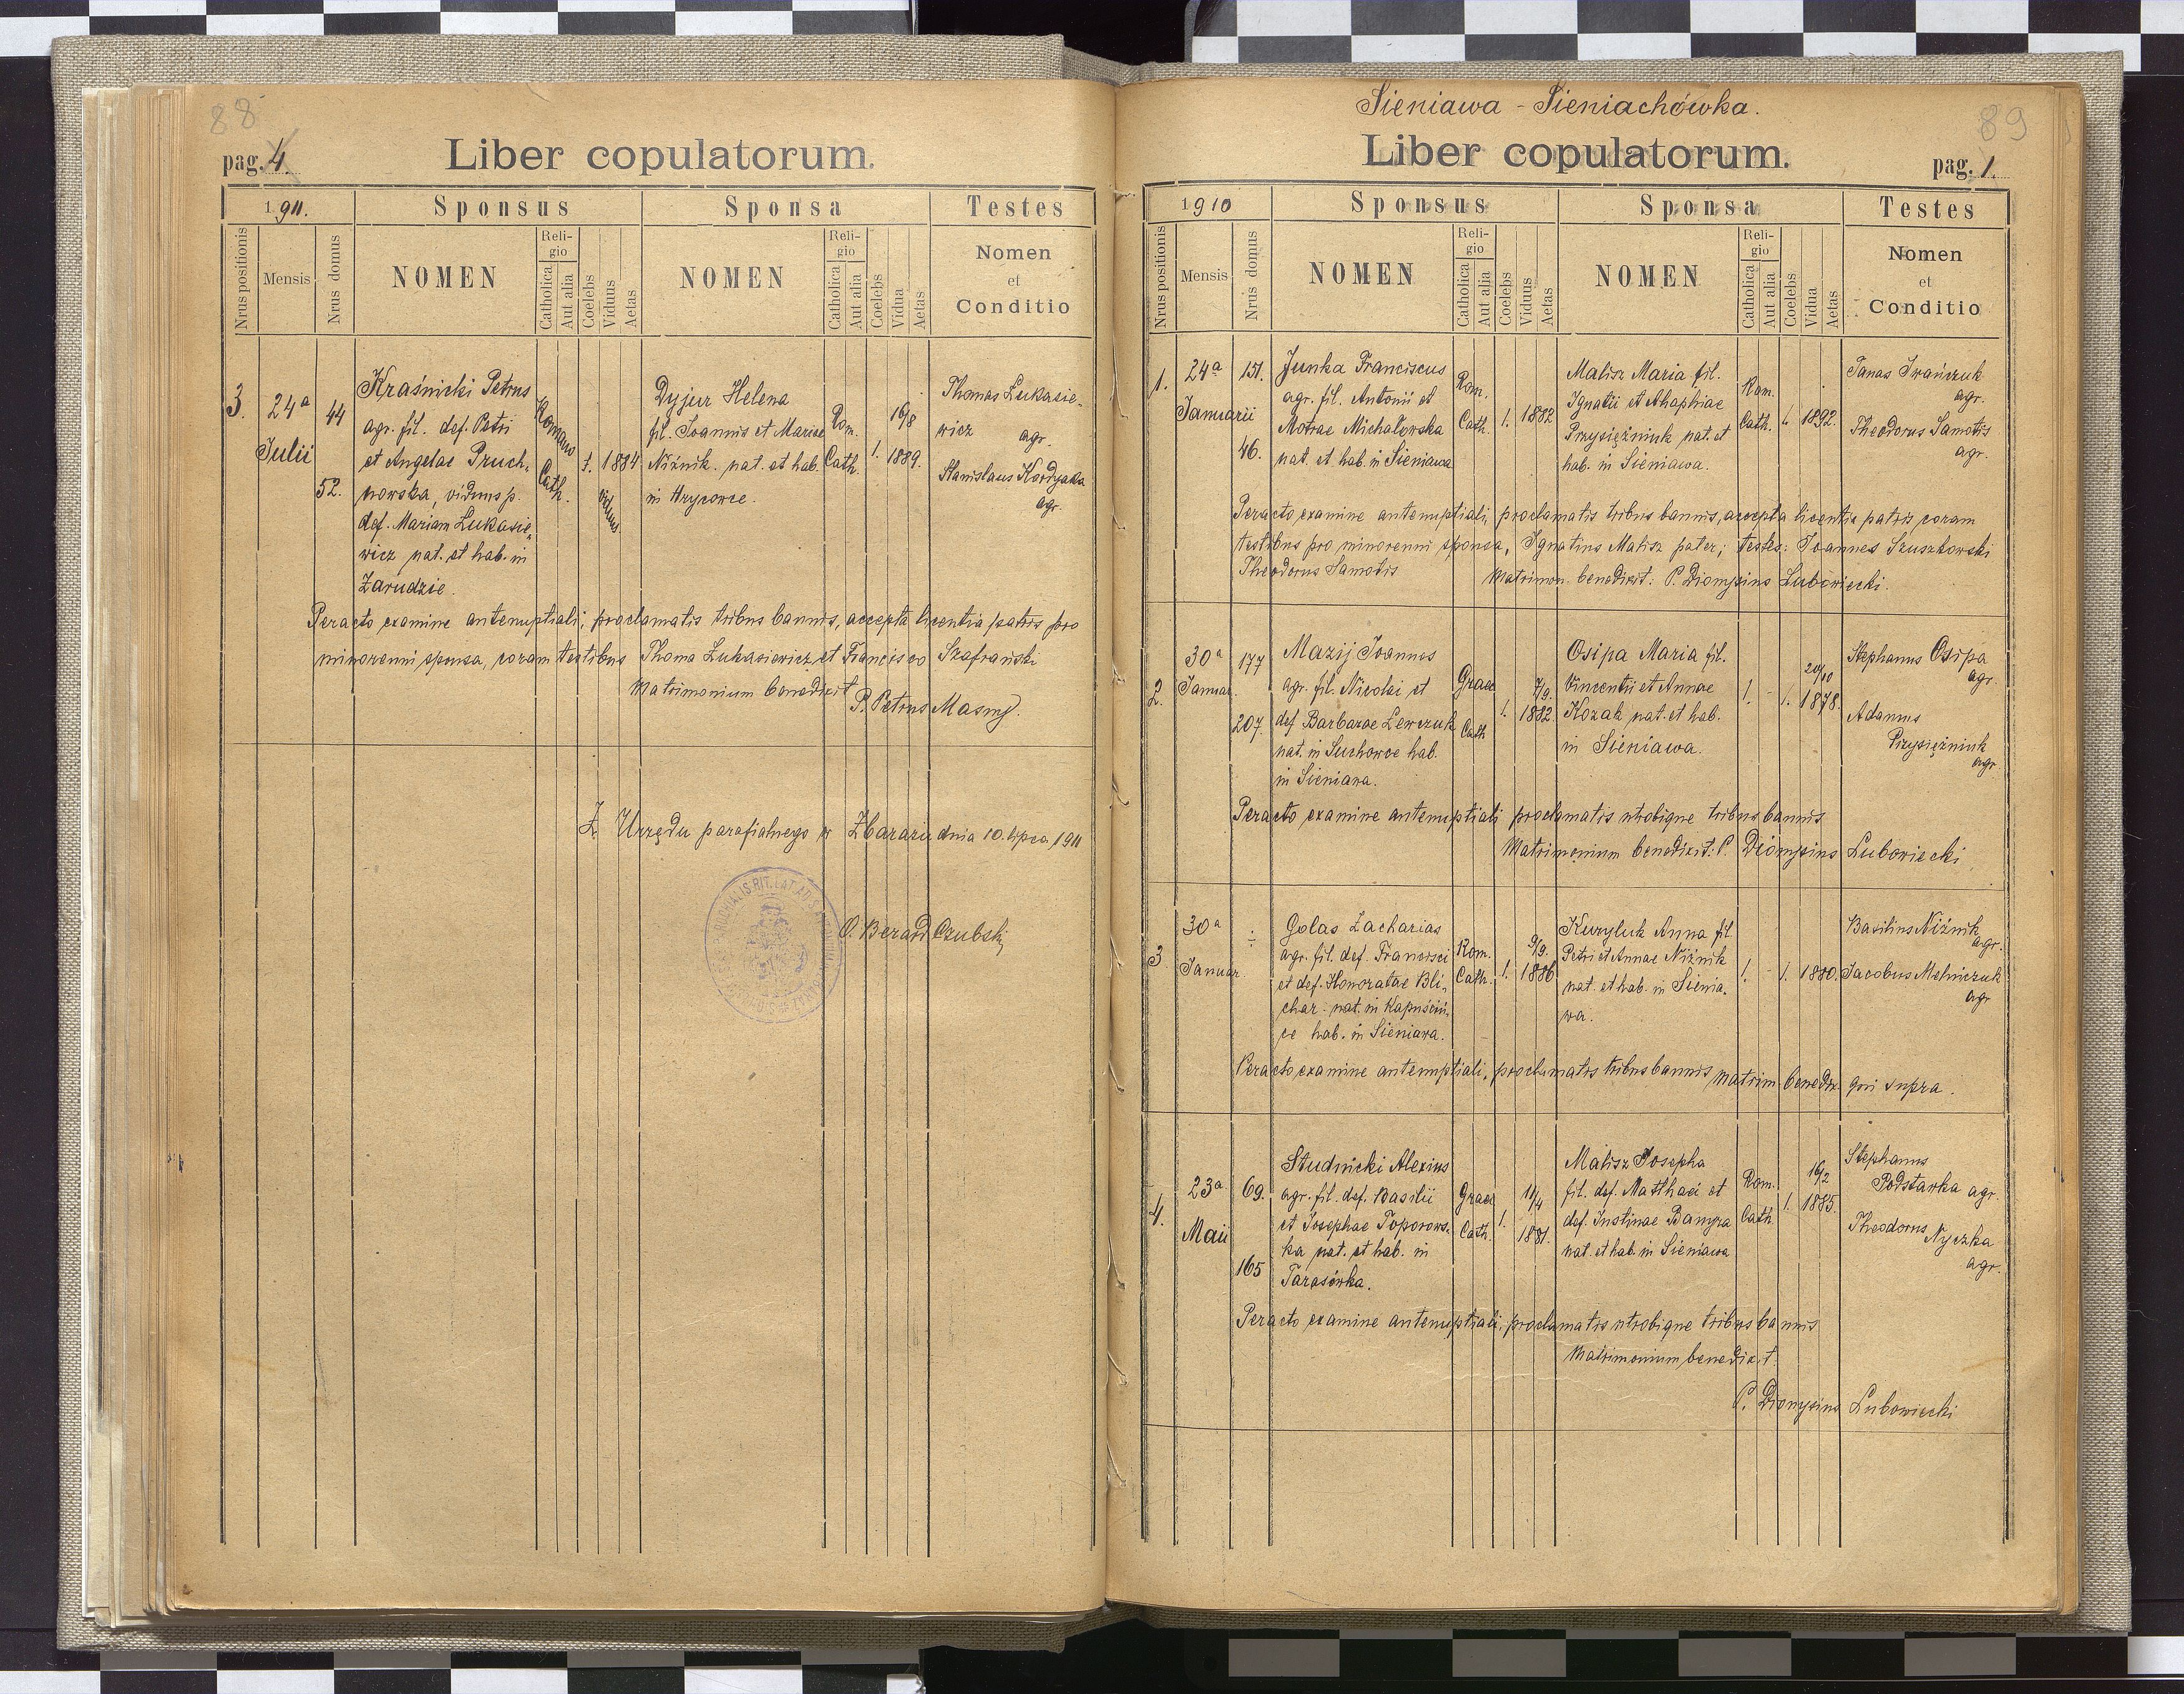 88
pag. 4.
Liber copulatorum.
1911.
Sponsus
Sponsa
Testes
Nrus positionis
Mensis
Nrus domus
NOMEN
Religio
Catholica
Aut alia
Coelebs
Viduus
Aetas
NOMEN
Religio
Catholica
Aut alia
Coelebs
Vidua
Aetas
Nomen
et
Conditio
3.
24a
Julii
44
52.
Kraśnicki Petrus
agr. fil. def. Petri
et Angelae Pruch-
nowska, viduus p.
def. Mariam Łukasie-
wicz nat. et hab. in
Zarudzie.
Romano
Cath.
1.
viduus
1884
Dyjur Helena
fil. Joannis et Mariae
Niźnik. nat. et hab.
in Hrycowce.
Rom.
Cath.
1.
16/8
1889.
Thomas Łukasie-
wicz agr.
Stanislaus Kordyaka
agr.
Peracto examine antenuptiali, proclamatis tribus bannis, accepta licentia patris pro
minorenni sponsa, coram testibus Thoma Łukasiewicz et Francisco Szafrański
Matrimonium benedixit
P. Petrus Masny.
Z Urzędu parafialnego w Zbarażu dnia 10. lipca 1911
O. Berard Czubski
Sieniawa - Sieniachówka.
89
Liber copulatorum.
pag. 1.
1910
Sponsus
Sponsa
Testes
Nrus positionis
Mensis
Nrus domus
NOMEN
Religio
Catholica
Aut alia
Coelebs
Viduus
Aetas
NOMEN
Religio
Catholica
Aut alia
Coelebs
Vidua
Aetas
Nomen
et
Conditio
1.
24a
Januarii
151.
46.
Junka Franciscus
agr. fil. Antonii et
Motrae Michałowska
nat. et hab. in Sieniawa
Rom.
Cath.
1.
1882
Malisz Maria fil.
Ignatii et Ahaphiae
Przysiężniuk nat. et
hab. in Sieniawa.
Rom.
Cath.
1.
1892.
Tanas Iwańczuk
agr.
Theodorus Samotis
agr.
Peracto examine antenuptiali, proclamatis tribus bannis, accepta licentia patris coram
testibus pro minorenni sponsa, Ignatius Malisz pater; testes: Joannes Szuszkowski
Theodorus Samotis Matrimon. benedixit: P. Dionysius Lubowiecki.
2.
30a
Januar.
177
207.
Mazij Joannes
agr. fil. Nicolai et
def. Barbarae Lewczuk
nat. in Suchowce hab.
in Sieniawa.
Graec
Cath
1.
7/9.
1882.
Osipa Maria fil.
Vincentii et Annae
Kozak nat. et hab.
in Sieniawa.
1. - 1.
20/10
1878.
Stephanus Osipa
agr.
Adamus
Przysiężniuk
agr.
Peracto examine antenuptiali proclamatis utrobique tribus bannis
Matrimonium benedixit: P. Dionysius Lubowiecki
3.
30a
Januar.
÷
Golas Zacharias
agr. fil. def. Francisci
et def. Honoratae Bli-
char. nat. in Kapuściń-
ce hab. in Sieniawa.
Rom.
Cath.
1.
9/9.
1886
Kuryluk Anna fil.
Petri et Annae Niźnik
nat. et hab. in Sienia-
wa.
1. - 1.
1880.
Basilius Niźnik
agr.
Jacobus Melniczuk
agr
Peracto examine antenuptiali, proclamatis tribus bannis matrim. benedix. qui supra.
4.
23a
Maii
69.
165
Studnicki Alexius
agr. fil. def. Basilii
et Josephae Toporows-
ka nat. et hab. in
Tarasówka.
Graec
Cath.
1.
11/4
1881.
Malisz Josepha
fil. def. Matthaei et
def. Justinae Bamyra
nat. et hab. in Sieniawa
Rom.
Cath.
1.
16/2
1885.
Stephanus
Podstawka agr.
Theodorus Nyczka
agr.
Peracto examine antenuptiali, proclamatis utrobique tribus bannis
Matrimonium benedixit
P. Dionysius Lubowiecki